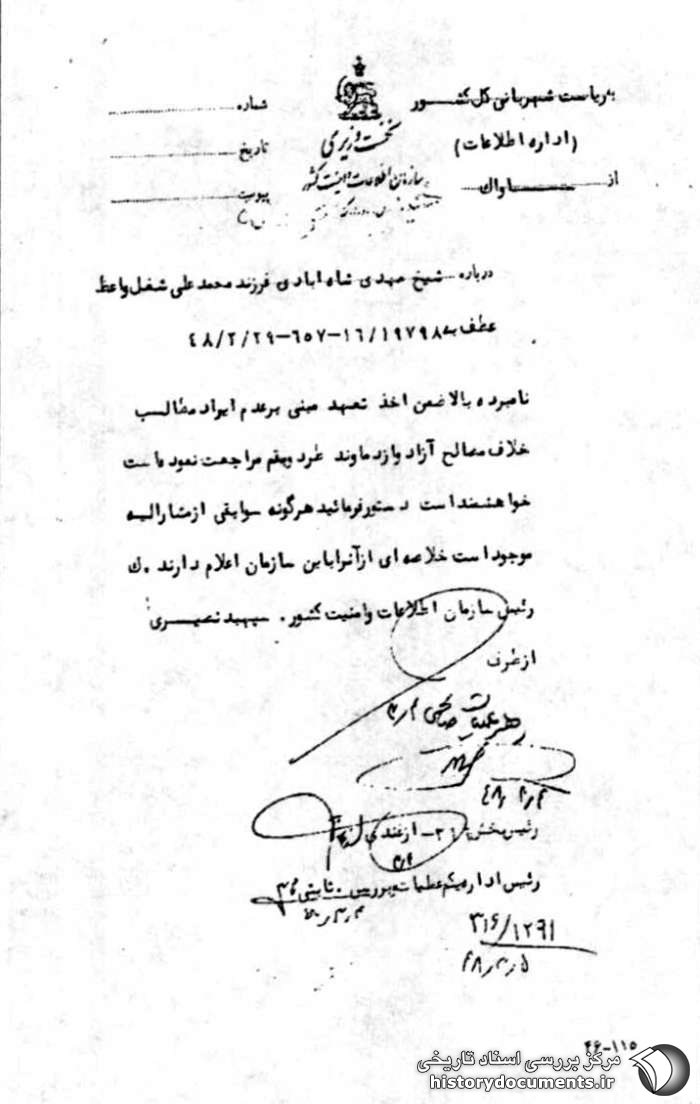 به ریاست شهربانی کل کشور
(اداره اطلاعات)
از ساواک
نخست وزیری
سازمان اطلاعات و امنیت کشور
شماره
تاریخ
پیوست
درباره شیخ مهدی شاه ابادی فرزند محمد علی شغل واعظ
عطف به ۱۶/۱۹۷۹۸-۶۵۷-۴۸/۲/۲۹
نامبرده بالا ضمن اخذ تعهد مبنی بر عدم ایراد مطالب
خلاف مصالح آزاد و از دماوند طرد و بقم مراجعت نموده است
خواهشمند است دستور فرمائید هرگونه سوابقی از مشارالیه
موجود است خلاصه ای از آنرا باین سازمان اعلام دارند . ک
رئیس سازمان اطلاعات و امنیت کشور . سپهبد نصیری
از طرف
رهبر عملیات صالحی
۴۸/۳/۴
رئیس بخش ۳۱۶ - ازغندی
رئیس اداره یکم عملیات و بررسی . ثابتی
۳۱۶/۱۲۹۱
۴۸/۳/۵
۴۶-۱۱۵
مرکز بررسی اسناد تاریخی
historydocuments.ir